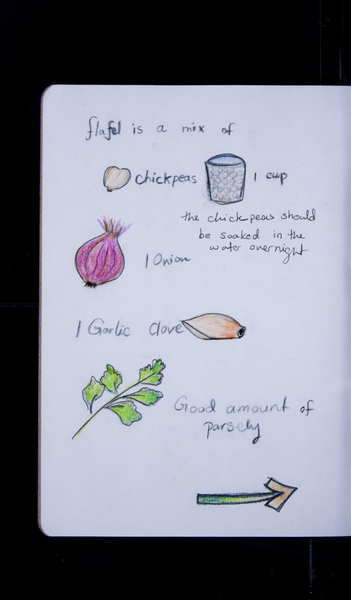 flafel is a mix of
chickpeas 1 cup
the chickpeas should
be soaked in the
water overnight
1 Onion
1 Garlic Clove
Good amount of
parsely